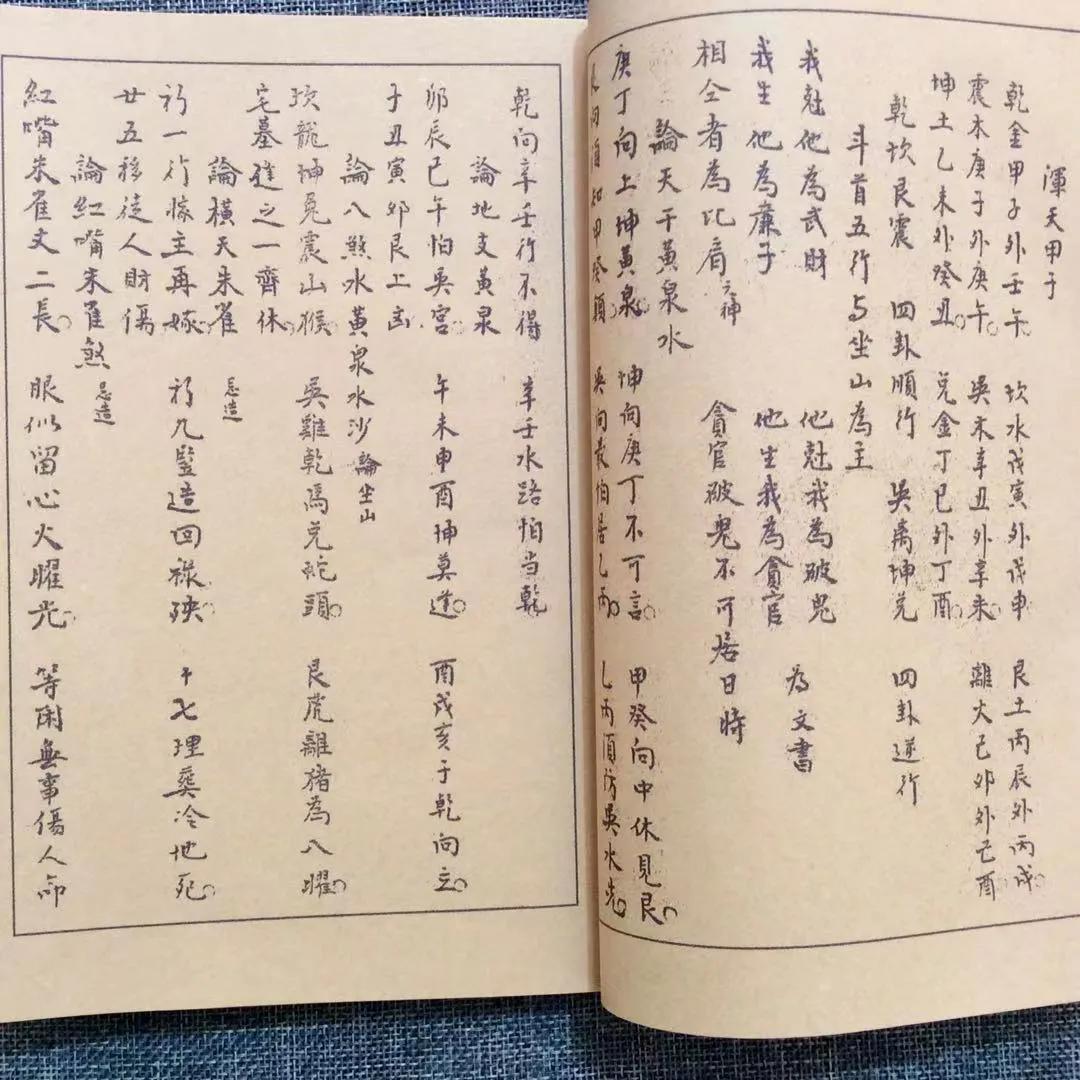 渾天甲子
乾金甲子外壬午 坎水戊寅外戊申 艮土丙辰外丙戌
震木庚子外庚午 吳木辛丑外辛未 離火己卯外己酉
坤土乙未外癸丑 兌金丁巳外丁酉
乾坎艮震 四卦順行 吳离坤兑 四卦逆行
斗首五行与坐山為主
我尅他為武財 他尅我為破鬼
我生他為廉子 他生我為貪官 為文書
相仝者為比肩 元神 貪官破鬼不可居日時
論天干黃泉水
庚丁向上坤黃泉 坤向庚丁不可言 甲癸向中休見艮
艮向須知甲癸嶺 吳向最怕居乙丙 乙丙須防吳水先
乾向辛壬行不得 辛壬水路怕当乾
論地支黃泉
卯辰巳午怕吳宮 午未申酉坤莫逢 酉戌亥子乾向立
子丑寅卯艮上凶
論八煞水黃泉水沙 論坐山
坎龍坤兔震山猴 吳雞乾馬兌蛇頭 艮虎離猪為八曜
宅墓逢之一齊休
論橫天朱雀 忌造
初一行嫁主再嫁 初九豎造回祿殃 十七埋葬冷地死
廿五移徒人財傷
論紅嘴朱雀煞 忌造
紅嘴朱雀丈二長 眼似留心火曜光 等閑無事傷人命